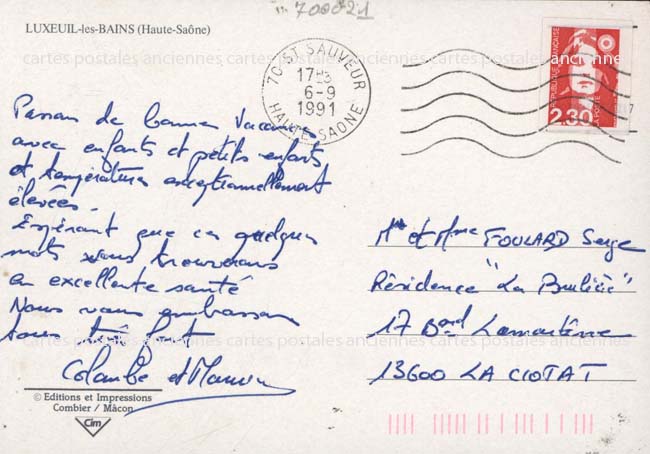 700021
LUXEUIL-les-BAINS (Haute-Saône)
cartes postales anciennes cartes postales anciennes cartes postales anciennes
70 ST SAUVEUR
17H
6-9
1991
HAUTE-SAONE
REPUBLIQUE FRANCAISE
LA POSTE
2,30
Passons de bonnes vacances
avec enfants et petits enfants
et températures exceptionnellement
élevées.
Espérant que ces quelques
mots vous trouverons
en excellente santé
Nous vous embrassons
tous très fort
Colombe et
Mr et Mme FOULARD Serge
Résidence "La"
17 Bard Lamartine
13600 LA CIOTAT
cartes postales anciennes cartes postales anciennes cartes postales anciennes
© Editions et Impressions
Combier / Mâcon
Cim